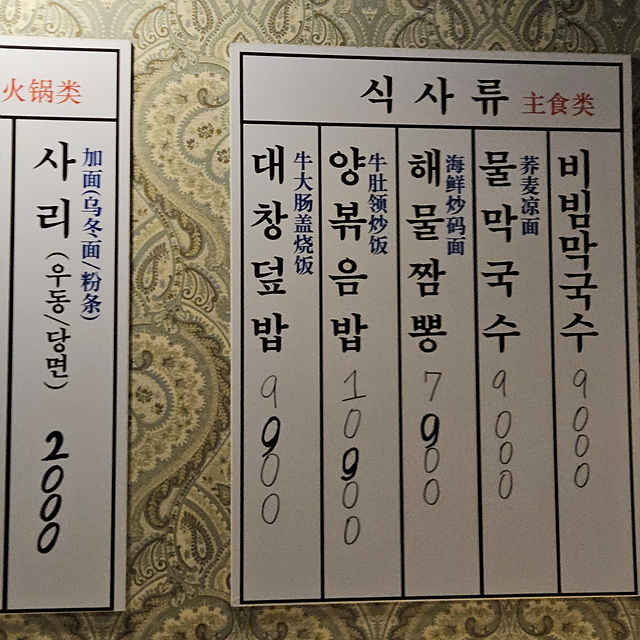 火锅类
사리(우동/당면)
加面(乌冬面/粉条)
2000
식사류 主食类
대창덮밥
牛大肠盖烧饭
9900
양볶음밥
牛肚领炒饭
10900
해물짬뽕
海鲜炒码面
7900
물막국수
荞麦凉面
9000
비빔막국수
9000